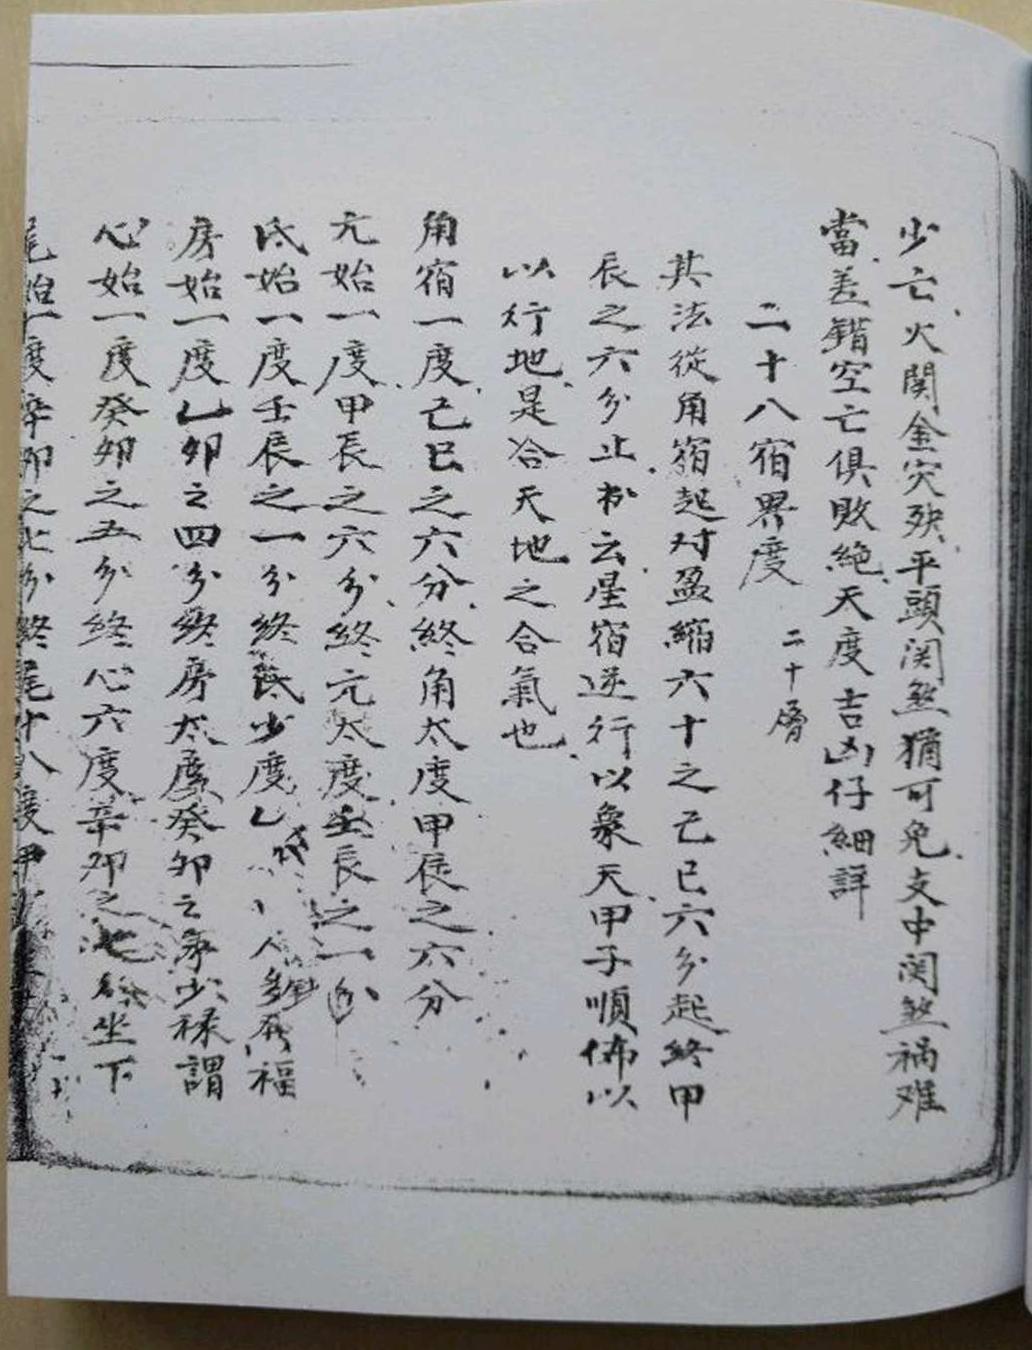 少亡火関金灾殃平頭関煞猶可免支中関煞禍难
當差錯空亡俱敗絶天度吉凶仔細詳
二十八宿界度 二十層
其法從角宿起对盈縮六十之己巳六分起終甲
辰之六分止 云星宿逆行以象天甲子順佈以
以行地是合天地之合氣也
角宿一度己巳之六分終角太度甲辰之六分
亢始一度甲辰之六分終亢太度壬辰之一分
氐始一度壬辰之一分終氐少度乙 福
房始一度乙卯之四分終房太度癸卯之 少禄謂
心始一度癸卯之五分終心六度辛卯之七 坐下
尾始一度辛卯之七分終尾十八度甲